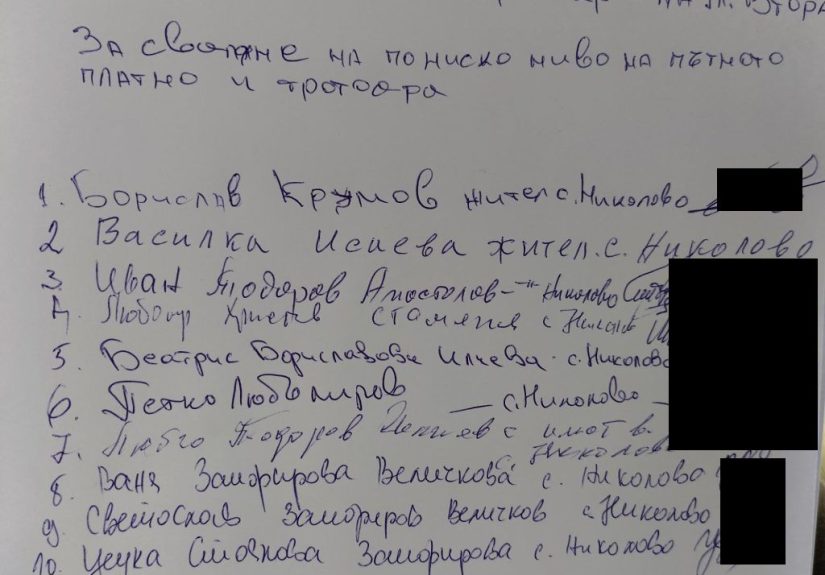 на
За сваляне на пониско ниво на пътното
платно и тротоара
1. Борислав Крумов жител с. Николово
2 Василка Исаева жител. с. Николово
3. Иван Тодоров Апостолов - " Николово
4. Любомир Христов с
5. Беатрис Бориславова Илиева - с. Николово
6. Петко Любомиров — с. Николово —
7. Любчо Тодоров с имот в.
Николово
8. Ваня Замфирова Величкова с. Николово
9. Светослав Замфиров Величков с Николово
10. Цеука Стоянова Замфирова с. Николово